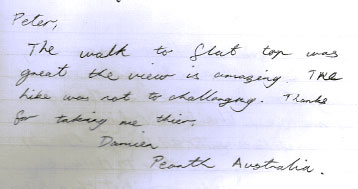 Peter,
The walk to flat top was
great the view is amazing. The
hike was not to challenging. Thanks
for taking me thier.
Damien
Peanth Australia.